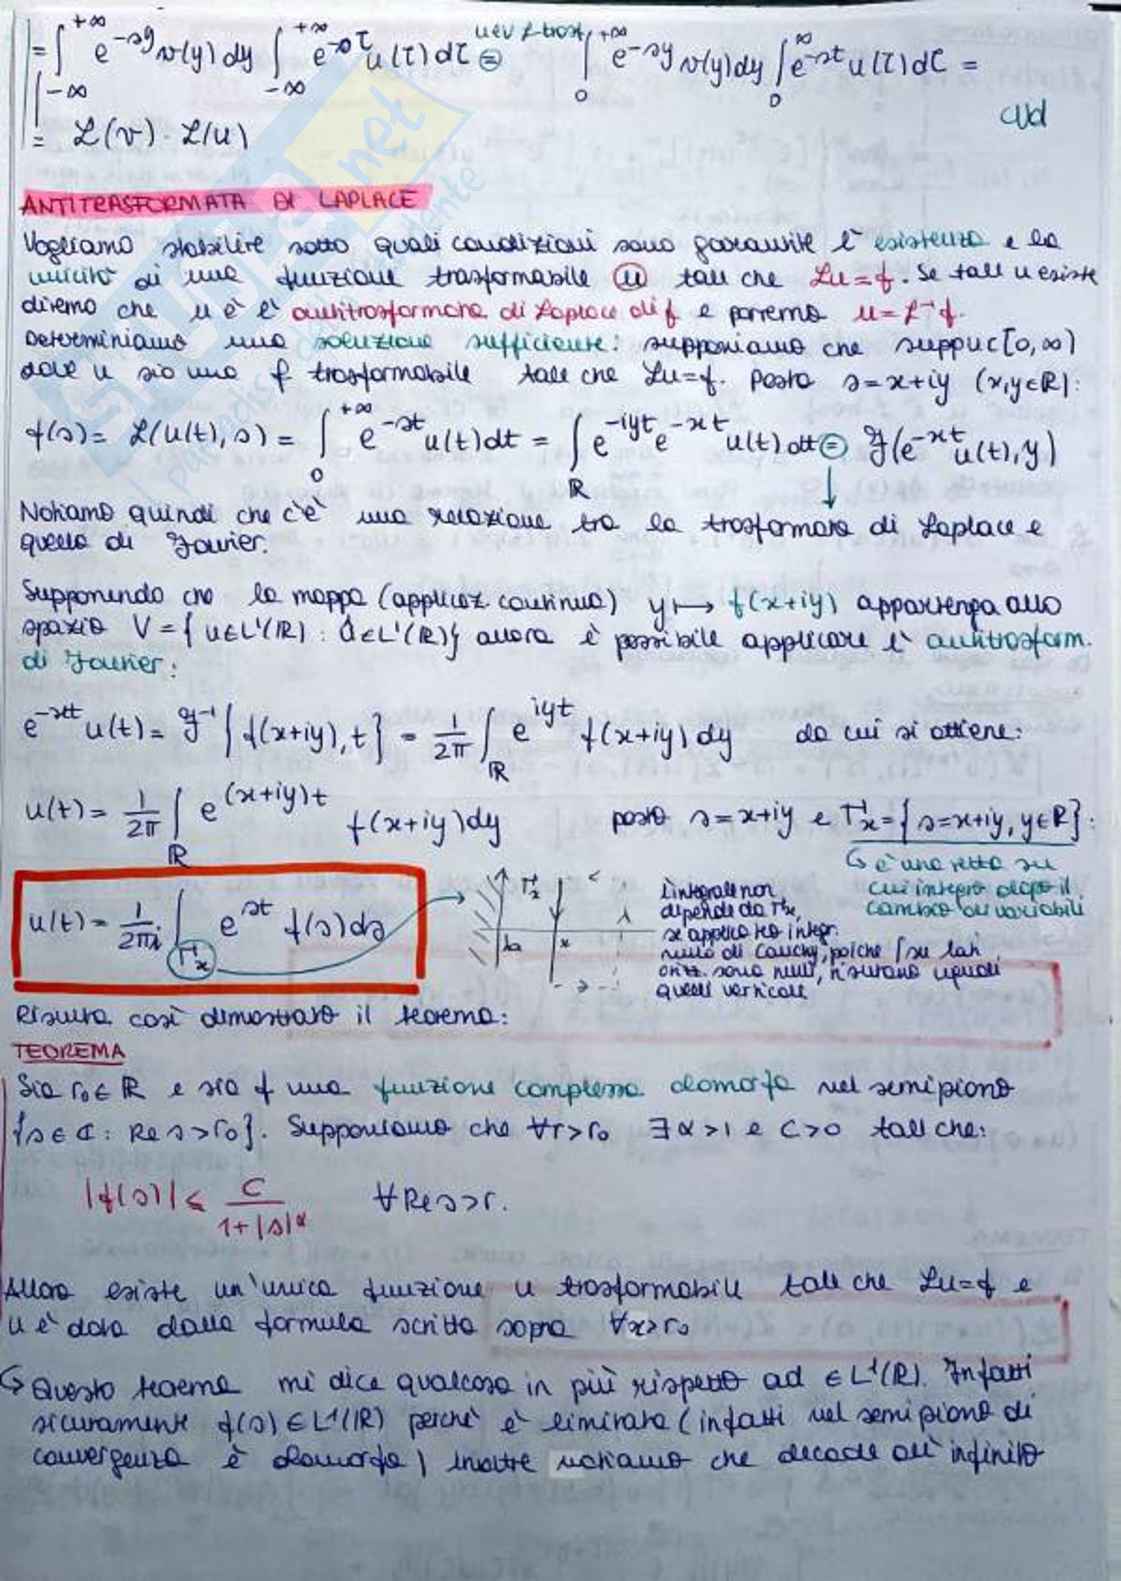 = ∫_{-∞}^{+∞} e^{-sy} v(y) dy ∫_{-∞}^{+∞} e^{-sτ} u(τ) dτ = u e v f trasf. ∫_0^{+∞} e^{-sy} v(y) dy ∫_0^{∞} e^{-sτ} u(τ) dτ =
= ℒ(v) · ℒ(u)
cvd
ANTITRASFORMATA DI LAPLACE
Vogliamo stabilire sotto quali condizioni sono garantite l'esistenza e la
unicità di una funzione trasformabile u tale che ℒu=f. Se tale u esiste
diremo che u è l'antitrasformata di Laplace di f e porremo u=ℒ⁻¹f.
Determiniamo una soluzione sufficiente: supponiamo che supp u ⊂ [0,∞)
dove u sia una f trasformabile tale che ℒu=f. Posto s=x+iy (x,y∈ℝ):
f(s) = ℒ(u(t),s) = ∫_0^{+∞} e^{-st} u(t) dt = ∫_ℝ e^{-iyt} e^{-xt} u(t) dt = ℱ(e^{-xt} u(t), y)
Notiamo quindi che c'è una relazione tra la trasformata di Laplace e
quella di Fourier.
Supponendo che la mappa (applicaz. continua) y ↦ f(x+iy) appartenga allo
spazio V = { u∈L¹(ℝ) : û∈L¹(ℝ)} allora è possibile applicare l'antitrasform.
di Fourier:
e^{-xt} u(t) = ℱ⁻¹ { f(x+iy), t } = 1/2π ∫_ℝ e^{iyt} f(x+iy) dy da cui si ottiene:
u(t) = 1/2π ∫_ℝ e^{(x+iy)t} f(x+iy) dy posto s=x+iy e Γ_x = { s=x+iy, y∈ℝ}:
↳ è una retta su
cui integro dopo il
cambio di variabili
u(t) = 1/2πi ∫_{Γ_x} e^{st} f(s) ds
Γ_x
λa
x
L'integrale non
dipende da Γx,
se applico teo integr.
nullo di Cauchy, poiché ∫ su lati
orizz. sono nulli, risultano uguali
quelli verticali
Risulta così dimostrato il teorema:
TEOREMA
Sia r₀∈ℝ e sia f una funzione complessa olomorfa nel semipiano
{s∈ℂ : Re s>r₀}. Supponiamo che ∀r>r₀ ∃α>1 e C>0 tali che:
|f(s)| ≤ C / 1+|s|^α ∀Re s>r.
Allora esiste un'unica funzione u trasformabile tale che ℒu=f e
u è data dalla formula scritta sopra ∀x>r₀
↳ Questo teorema mi dice qualcosa in più rispetto ad ∈ L¹(ℝ). Infatti
sicuramente f(s) ∈ L¹(ℝ) perché è limitata (infatti nel semipiano di
convergenza è olomorfa) inoltre notiamo che decade all'infinito